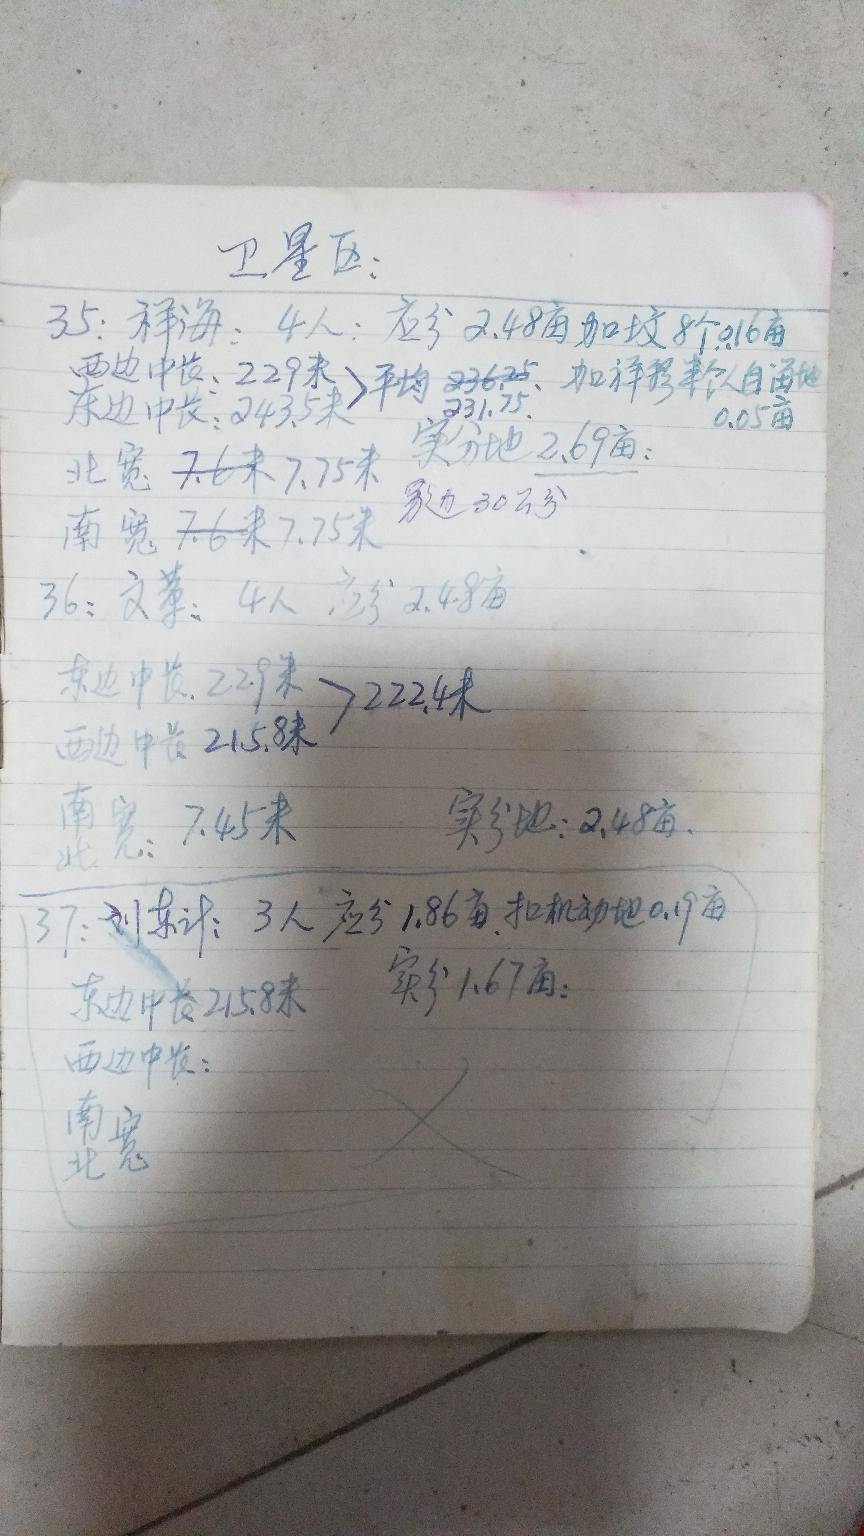 卫星区:
35: 祥海: 4人: 应分2.48亩 加坟8个0.16亩
西边中长: 229米 > 平均 236.25、 加祥 半个人自留地
东边中长: 243.5米 231.75. 0.05亩
北宽 7.6米 7.75米 实分地 2.69亩:
南宽 7.6米 7.75米 边30公分
36: 文革: 4人 应分2.48亩
东边中长. 229米 > 222.4米
西边中长 215.8米
南
北 宽: 7.45米 实分地: 2.48亩.
37: 刘东计: 3人 应分1.86亩. 扣机动地0.19亩
东边中长 215.8米 实分1.67亩:
西边中长:
南
北 宽